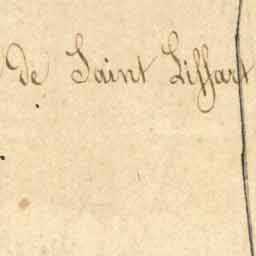 de Saint Liffart